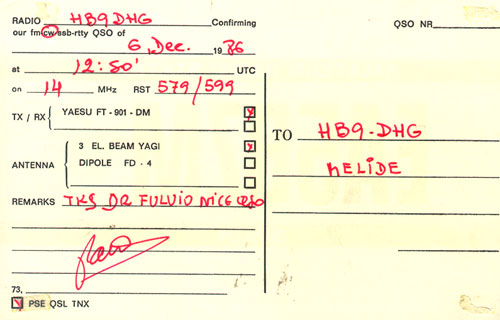 RADIO HB9DHG Confirming
our fm cw ssb-rtty QSO of
6, Dec. 1986
at 12:50' UTC
on 14 MHz RST 579/599
TX / RX YAESU FT - 901 - DM X
ANTENNA 3 EL. BEAM YAGI X
DIPOLE FD - 4
REMARKS TKS DR FULVIO NICE QSO
73,
X PSE QSL TNX
QSO NR
TO HB9-DHG
MELIDE